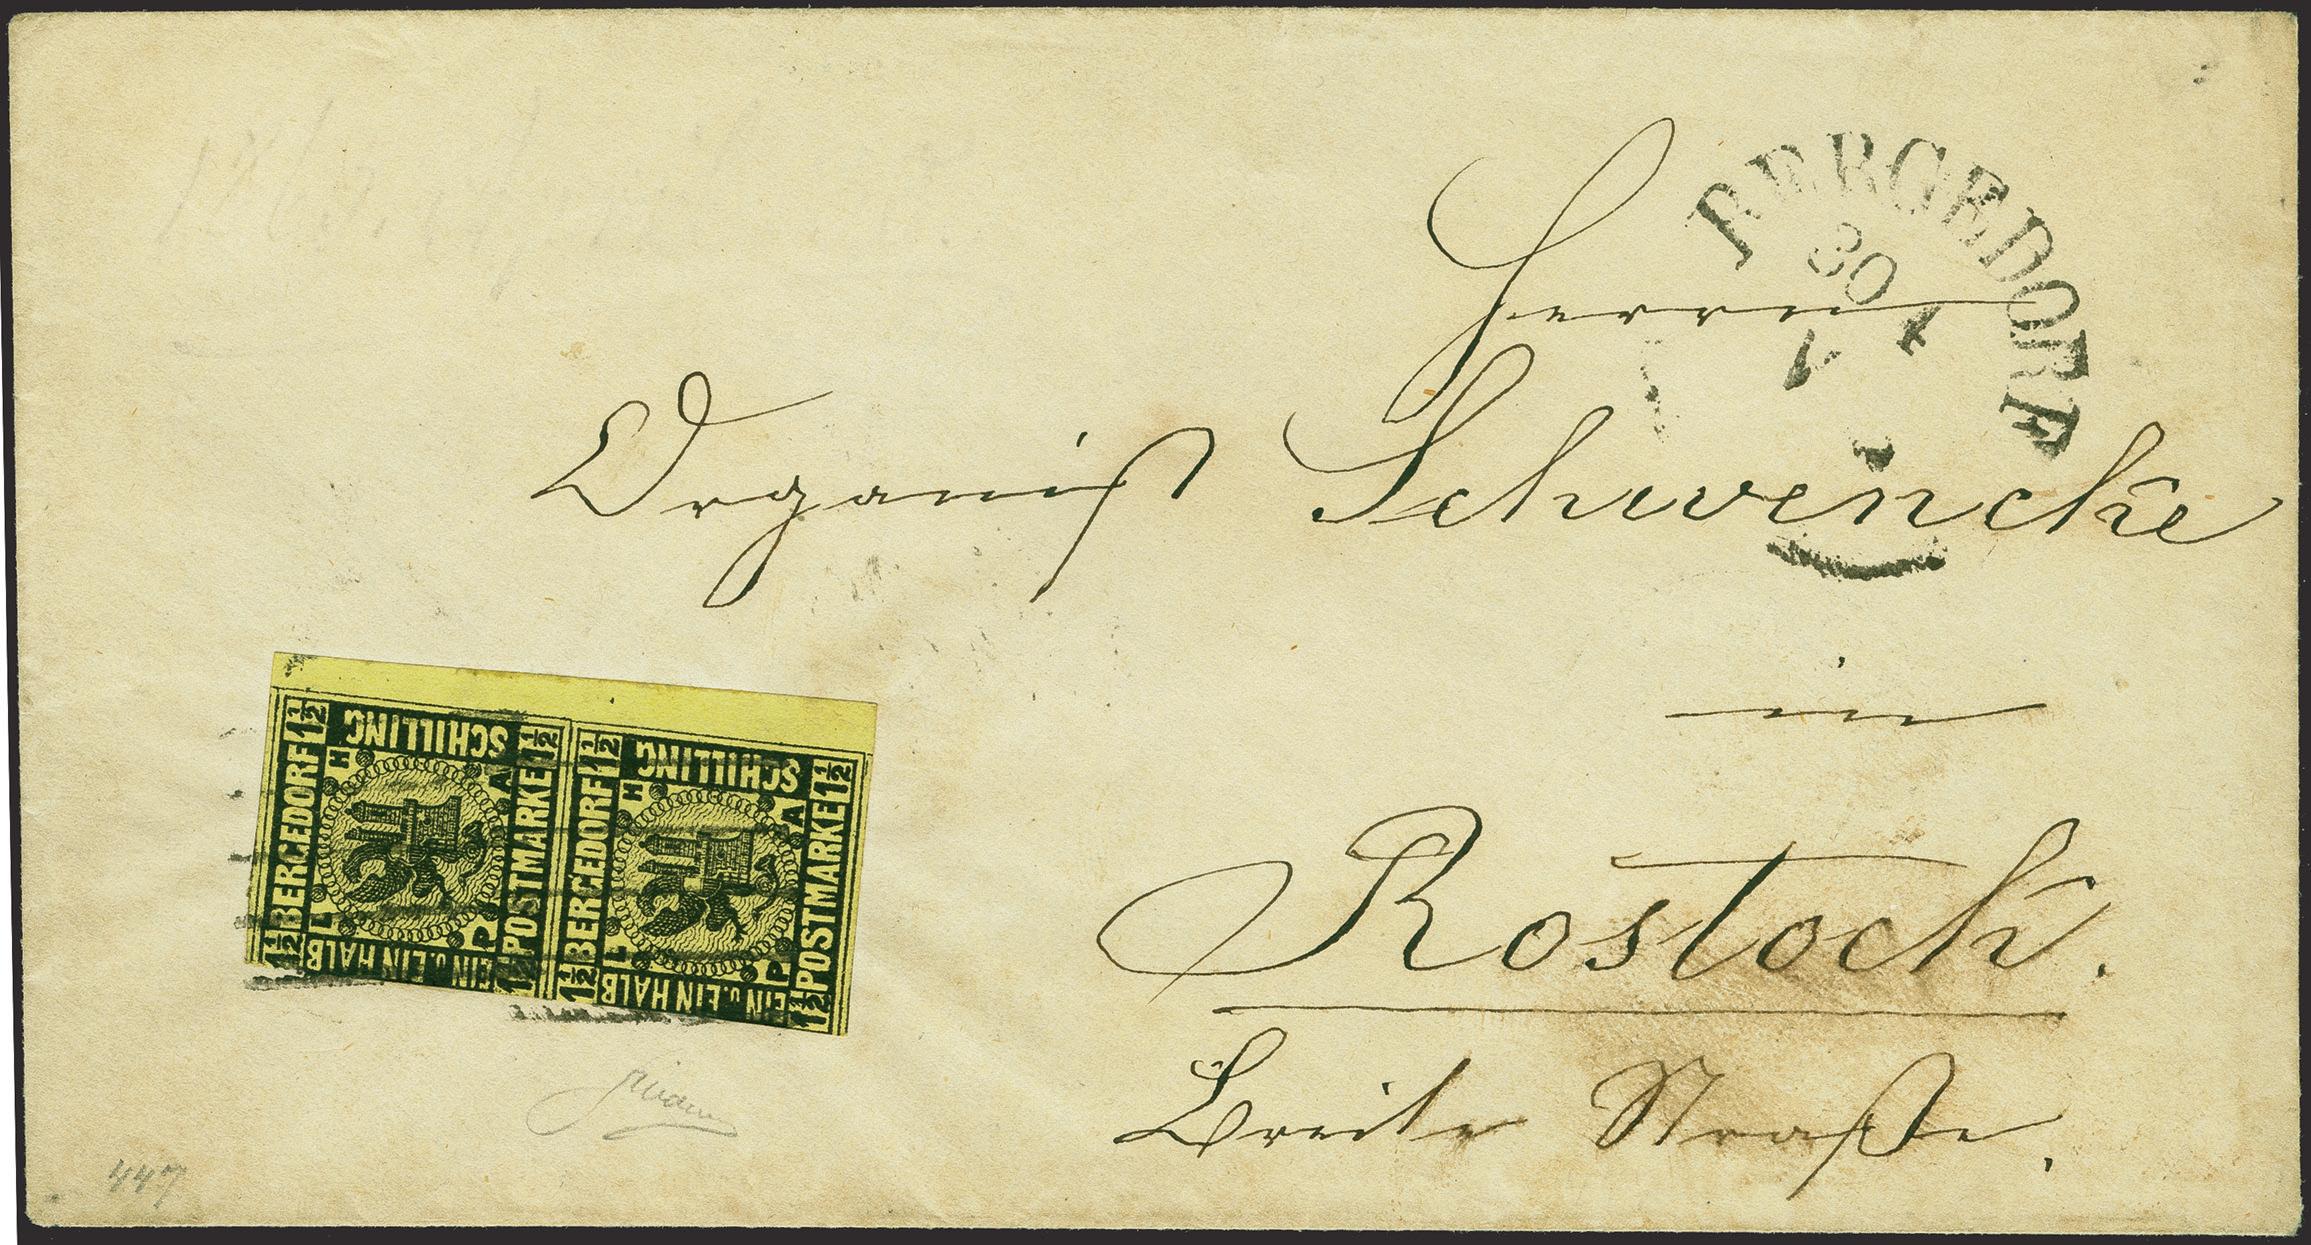 BERGEDORF
30
Herrn
Organist Schwencke
in
Rostock.
Breite Straße.
SCHILLING
BERGEDORF
POSTMARKE
EIN u. EIN HALB
1½ 1½ 1½ 1½
L H A P
SCHILLING
BERGEDORF
POSTMARKE
EIN u. EIN HALB
1½ 1½ 1½ 1½
L H A P
447